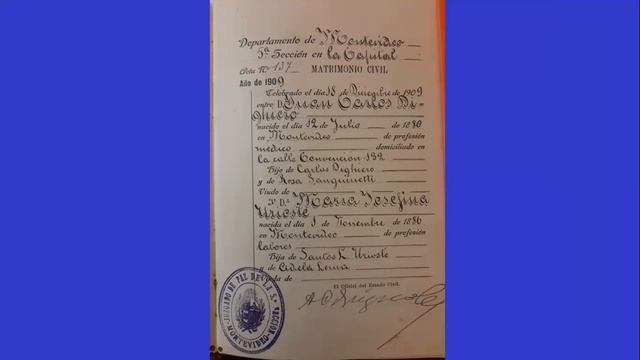 Departamento de Montevideo
5ª Sección en la Capital
Acta Nº 137 MATRIMONIO CIVIL
Año de 1909
Celebrado el día 18 de Diciembre de 1909
entre D. Juan Carlos Di-
ghiero
nacido el día 12 de Julio de 1880
en Montevideo de profesión
médico domiciliado en
la calle Convención 132
Hijo de Carlos Dighiero
y de Rosa Sanguinetti
Viudo de
y Dª María Josefina
Urioste
nacida el día 1 de Noviembre de 1886
en Montevideo de profesión
labores
Hija de Santos L. Urioste
y de Lema
Viuda de
El Oficial del Estado Civil.
JUZGADO DE PAZ DE LA 5ª SECCION
MONTEVIDEO